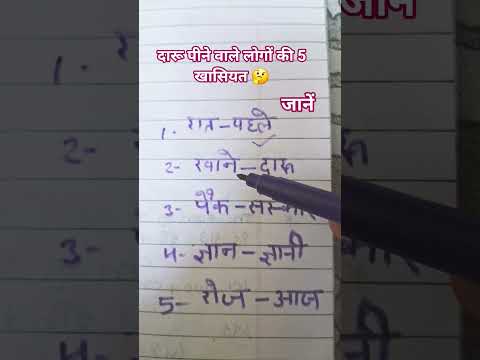 दारू पीने वाले लोगों की 5
खासियत 🤔
जानें
1. रात - पहले
2- खाने - दारू
3- पैक - संस्कार
4- ज्ञान - ज्ञानी
5- रोज - आज